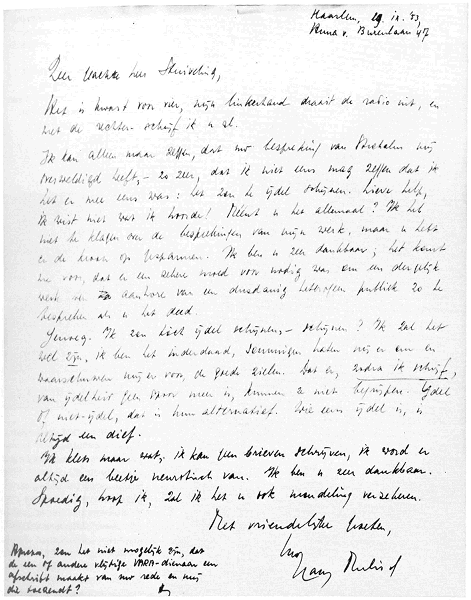 Haarlem, 29.IX.53,
Anna v. Burenlaan 47
Zeer geachte heer Stuiveling,
Het is kwart voor vier, mijn linkerhand draait de radio uit, en
met de rechter- schrijf ik u al.
Ik kan alleen maar zeggen, dat uw bespreking van mij
overweldigd heeft, – zo zeer, dat ik niet eens mag zeggen dat ik
het er mee eens was: het zou te ijdel schijnen. Lieve help,
ik wist niet wat ik hoorde! Meent u het allemaal? Ik heb
niet te klagen over de besprekingen van mijn werk, maar u hebt
er de kroon op gespannen. Ik ben u zeer dankbaar; het komt
me voor, dat er een zekere moed voor nodig was om een dergelijk
werk ten aanhore van een dusdanig heterogeen publiek zo te
bespreken als u het deed.
Genoeg. Ik zou toch ijdel schijnen, – schijnen? Ik zal het
wel zijn, ik ben het inderdaad, sommigen haten mij er om en
waarschuwen mij er voor, de goede zielen. Dat er, zodra ik schrijf,
van ijdelheid geen spoor meer is, kunnen ze niet begrijpen. IJdel
of niet-ijdel, dat is hun alternatief. Wie eens ijdel is, is
altijd een dief.
Ik klets maar wat, ik kan geen brieven schrijven, ik word er
altijd een beetje neurotisch van. Ik ben u zeer dankbaar.
Spoedig, hoop ik, zal ik het u ook mondeling verzekeren.
Met vriendelijke groeten,
Uw
Harry Mulisch
zou het niet mogelijk zijn, dat
de een of andere vlijtige VARA-dienaar een
afschrift maakt van uw rede en mij
die toezendt?